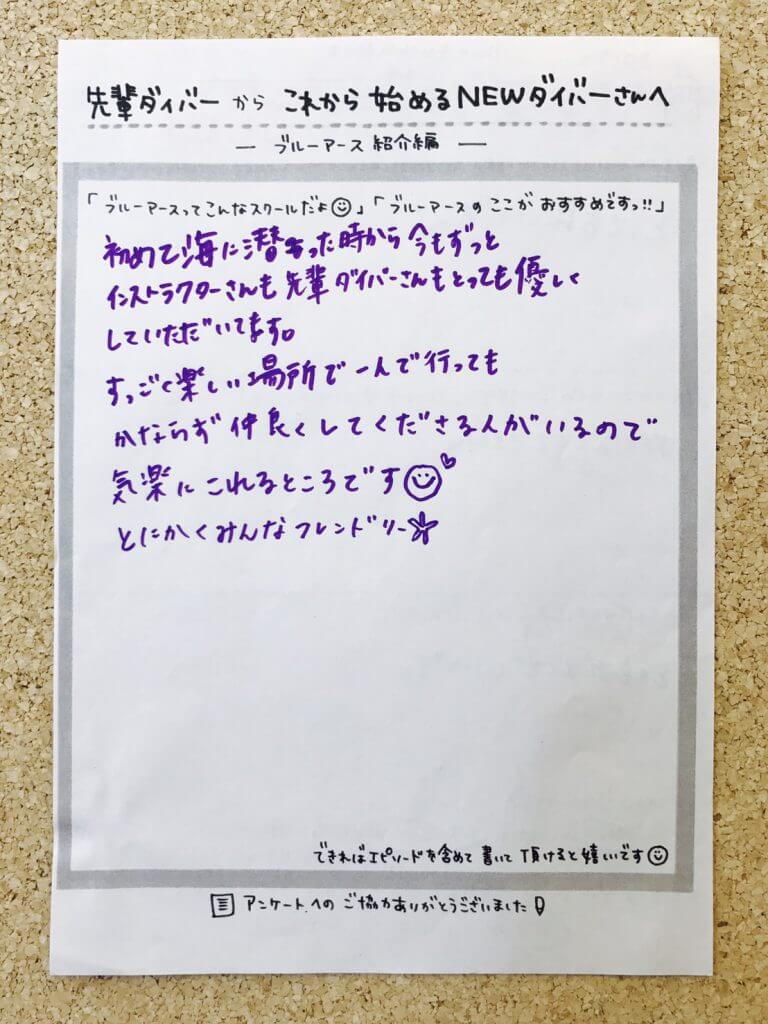 先輩ダイバー から これから 始める NEWダイバーさんへ
― ブルーアース 紹介編 ―
「ブルーアースってこんなスクールだよ☺」「ブルーアースの ここが おすすめですっ!!」
初めて海に潜った時から今もずっと
インストラクターさんも先輩ダイバーさんもとっても優しく
していただいてます。
すっごく楽しい場所で一人で行っても
かならず仲良くしてくださる人がいるので
気楽にこれるところです☺♡
とにかくみんなフレンドリー☆
できればエピソードを含めて 書いて 頂けると嬉しいです☺
アンケートへの ご協力ありがとうございました